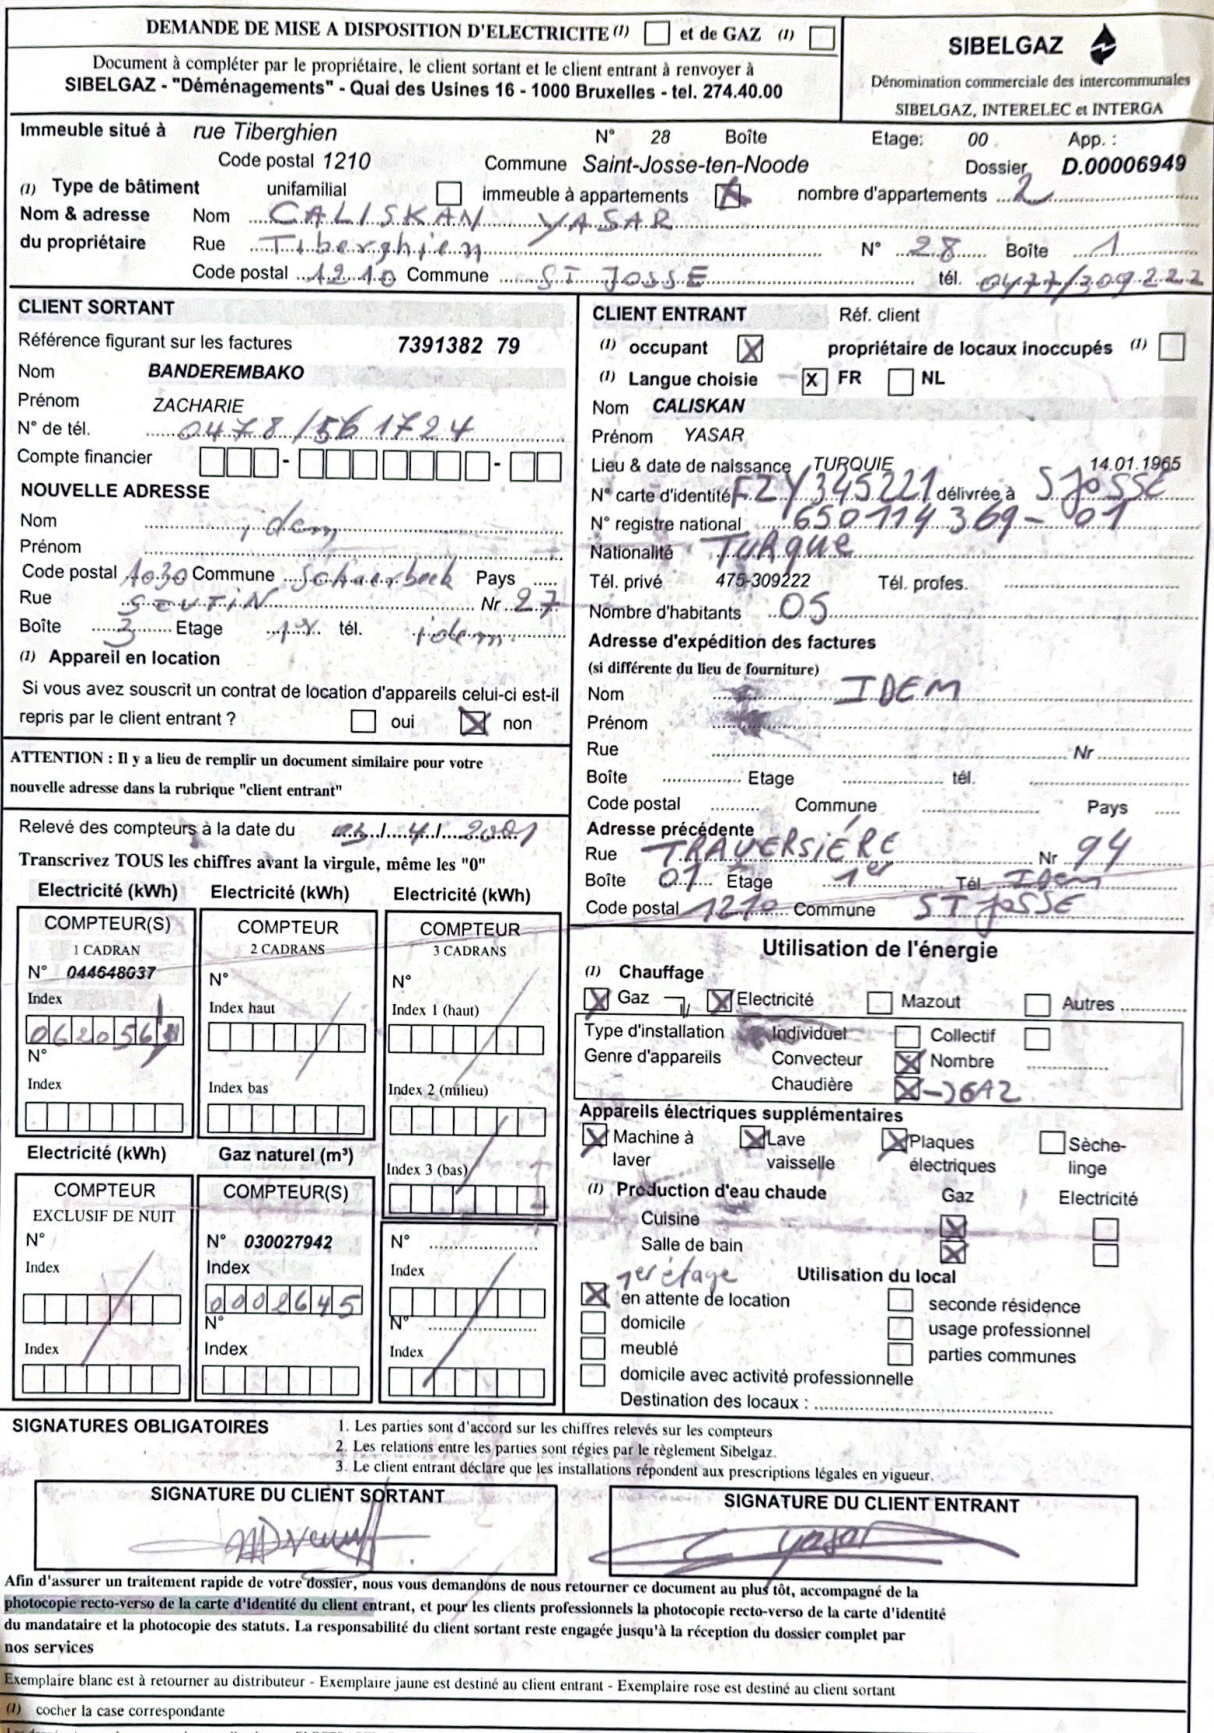 DEMANDE DE MISE A DISPOSITION D'ELECTRICITE (1) et de GAZ (1)
Document à compléter par le propriétaire, le client sortant et le client entrant à renvoyer à
SIBELGAZ - "Déménagements" - Quai des Usines 16 - 1000 Bruxelles - tel. 274.40.00
SIBELGAZ
Dénomination commerciale des intercommunales
SIBELGAZ, INTERELEC et INTERGA
Immeuble situé à rue Tiberghien N° 28 Boîte Etage: 00 App. :
Code postal 1210 Commune Saint-Josse-ten-Noode Dossier D.00006949
(1) Type de bâtiment unifamilial immeuble à appartements X nombre d'appartements 2
Nom & adresse Nom CALISKAN YASAR
du propriétaire Rue Tiberghien N° 28 Boîte 1
Code postal 1210 Commune ST JOSSE tél. 0477/309222
CLIENT SORTANT
Référence figurant sur les factures 7391382 79
Nom BANDEREMBAKO
Prénom ZACHARIE
N° de tél. 0478/561724
Compte financier - -
NOUVELLE ADRESSE
Nom idem
Prénom
Code postal 1030 Commune Schaerbeek Pays
Rue Nr 27
Boîte 3 Etage tél. idem
(1) Appareil en location
Si vous avez souscrit un contrat de location d'appareils celui-ci est-il
repris par le client entrant ? oui X non
ATTENTION : Il y a lieu de remplir un document similaire pour votre
nouvelle adresse dans la rubrique "client entrant"
Relevé des compteurs à la date du /4/2001
Transcrivez TOUS les chiffres avant la virgule, même les "0"
Electricité (kWh) Electricité (kWh) Electricité (kWh)
COMPTEUR(S) COMPTEUR COMPTEUR
1 CADRAN 2 CADRANS 3 CADRANS
N° 044648037 N° N°
Index Index haut Index 1 (haut)
062056
N°
Index Index bas Index 2 (milieu)
Electricité (kWh) Gaz naturel (m³) Index 3 (bas)
COMPTEUR COMPTEUR(S)
EXCLUSIF DE NUIT
N° N° 030027942 N°
Index Index Index
0002645
N° N°
Index Index Index
CLIENT ENTRANT Réf. client
(1) occupant X propriétaire de locaux inoccupés (1)
(1) Langue choisie X FR NL
Nom CALISKAN
Prénom YASAR
Lieu & date de naissance TURQUIE 14.01.1965
N° carte d'identité FZY345221 délivrée à S JOSSE
N° registre national 650114 369-01
Nationalité TURque
Tél. privé 475-309222 Tél. profes.
Nombre d'habitants 05
Adresse d'expédition des factures
(si différente du lieu de fourniture)
Nom IDEM
Prénom
Rue Nr
Boîte Etage tél.
Code postal Commune Pays
Adresse précédente
Rue TRAVERSIÉRE Nr 94
Boîte 01 Etage 1er Tél. Idem
Code postal 1210 Commune ST JOSSE
Utilisation de l'énergie
(1) Chauffage
X Gaz X Electricité Mazout Autres
Type d'installation Individuel Collectif
Genre d'appareils Convecteur X Nombre
Chaudière X -> GAZ
Appareils électriques supplémentaires
X Machine à laver X Lave vaisselle X Plaques électriques Sèche-linge
(1) Production d'eau chaude Gaz Electricité
Cuisine X
Salle de bain X
1er étage Utilisation du local
X en attente de location seconde résidence
domicile usage professionnel
meublé parties communes
domicile avec activité professionnelle
Destination des locaux :
SIGNATURES OBLIGATOIRES 1. Les parties sont d'accord sur les chiffres relevés sur les compteurs
2. Les relations entre les parties sont régies par le règlement Sibelgaz.
3. Le client entrant déclare que les installations répondent aux prescriptions légales en vigueur.
SIGNATURE DU CLIENT SORTANT SIGNATURE DU CLIENT ENTRANT
yasar
Afin d'assurer un traitement rapide de votre dossier, nous vous demandons de nous retourner ce document au plus tôt, accompagné de la
photocopie recto-verso de la carte d'identité du client entrant, et pour les clients professionnels la photocopie recto-verso de la carte d'identité
du mandataire et la photocopie des statuts. La responsabilité du client sortant reste engagée jusqu'à la réception du dossier complet par
nos services
Exemplaire blanc est à retourner au distributeur - Exemplaire jaune est destiné au client entrant - Exemplaire rose est destiné au client sortant
(1) cocher la case correspondante